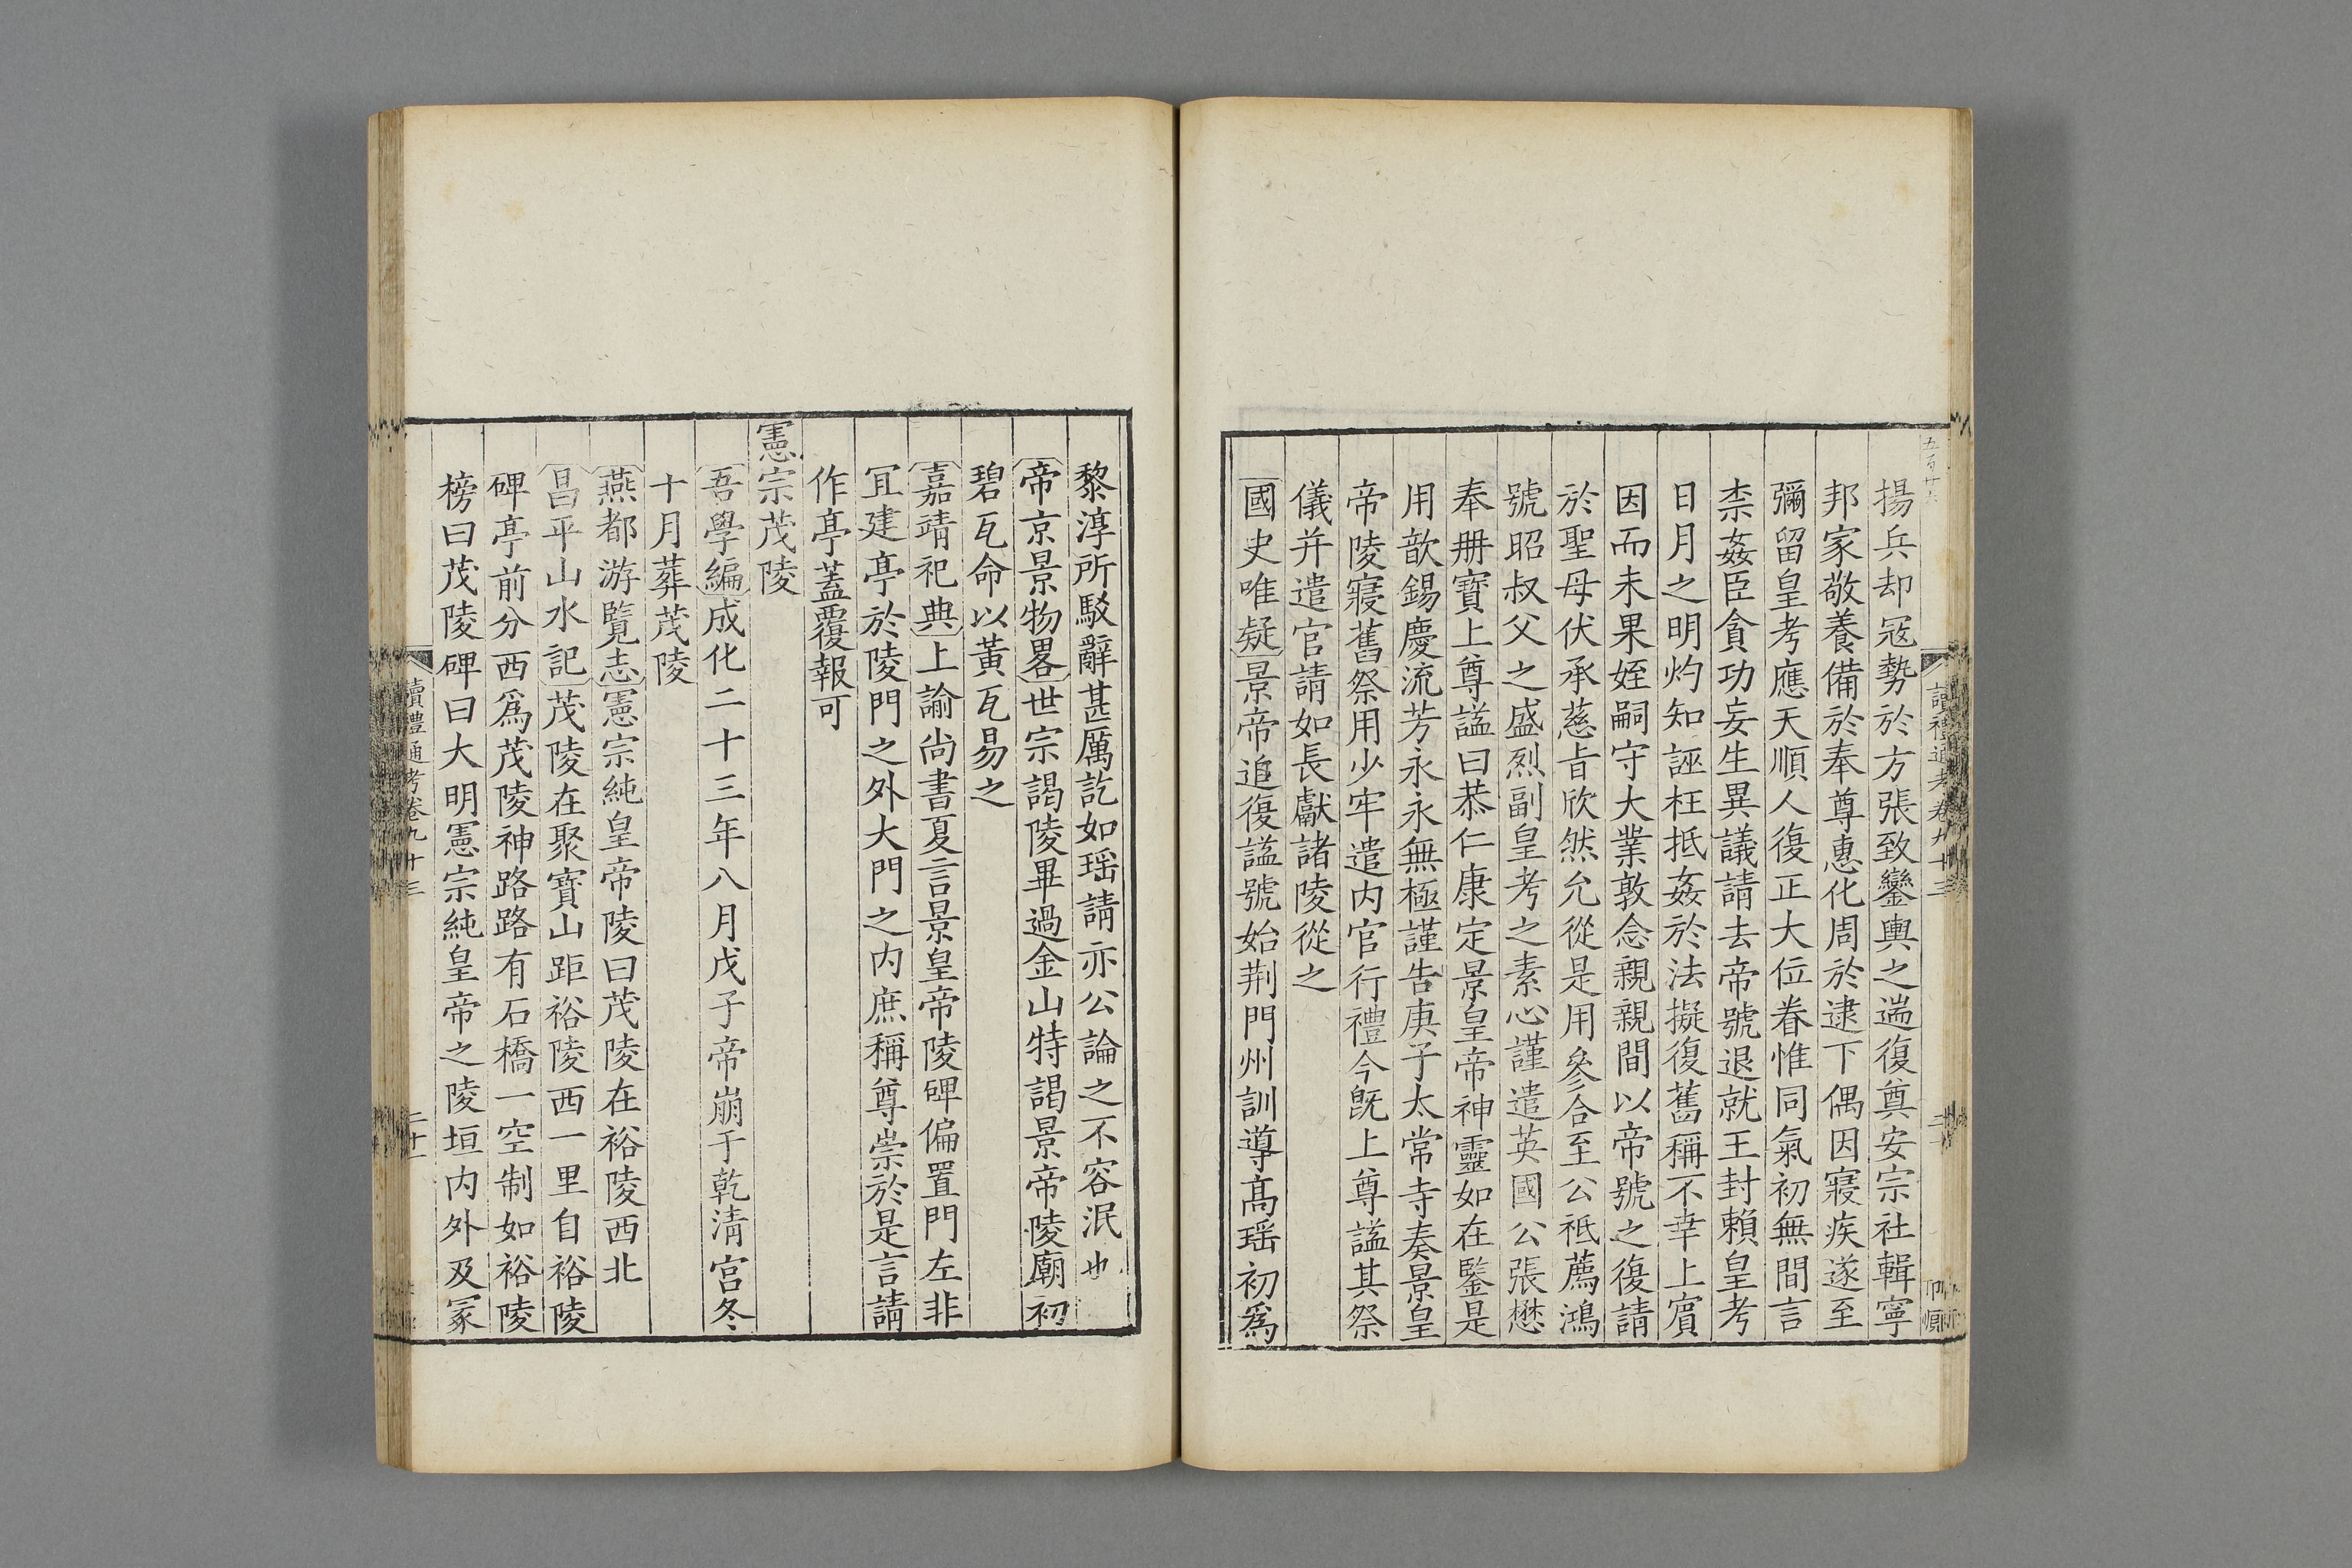 揚兵却冦勢於方張致鑾輿之遄復奠安宗社輯寧
邦家敬養備於奉尊惠化周於逮下偶因寢疾遂至
彌留皇考應天順人復正大位眷惟同氣初無間言
柰姦臣貪功妄生異議請去帝號退就王封賴皇考
日月之明灼知誣枉抵姦於法擬復舊稱不幸上賓
因而未果姪嗣守大業敦念親親間以帝號之復請
於聖母伏承慈旨欣然允從是用參合至公祗薦鴻
號昭叔父之盛烈副皇考之素心謹遣英國公張懋
奉冊寶上尊謚曰恭仁康定景皇帝神靈如在鑒是
用歆錫慶流芳永永無極謹告庚子太常寺奏景皇
帝陵寢舊祭用少牢遣内官行禮今旣上尊謚其祭
儀并遣官請如長獻諸陵從之
國史唯疑景帝追復謚號始荆門州訓導髙瑶初爲
讀禮通考卷九十三
黎淳所駁辭甚厲訖如瑶請亦公論之不容泯也
帝京景物畧世宗謁陵畢過金山特謁景帝陵廟初
碧瓦命以黃瓦易之
嘉靖祀典上諭尚書夏言景皇帝陵碑偏置門左非
冝建亭於陵門之外大門之内庶稱尊崇於是言請
作亭蓋覆報可
憲宗茂陵
吾學編成化二十三年八月戊子帝崩于乾淸宫冬
十月葬茂陵
燕都游覽志憲宗純皇帝陵曰茂陵在裕陵西北
昌平山水記茂陵在聚寳山距裕陵西一里自裕陵
碑亭前分西爲茂陵神路路有石橋一空制如裕陵
榜曰茂陵碑曰大明憲宗純皇帝之陵垣内外及冡
讀禮通考卷九十三
二十一